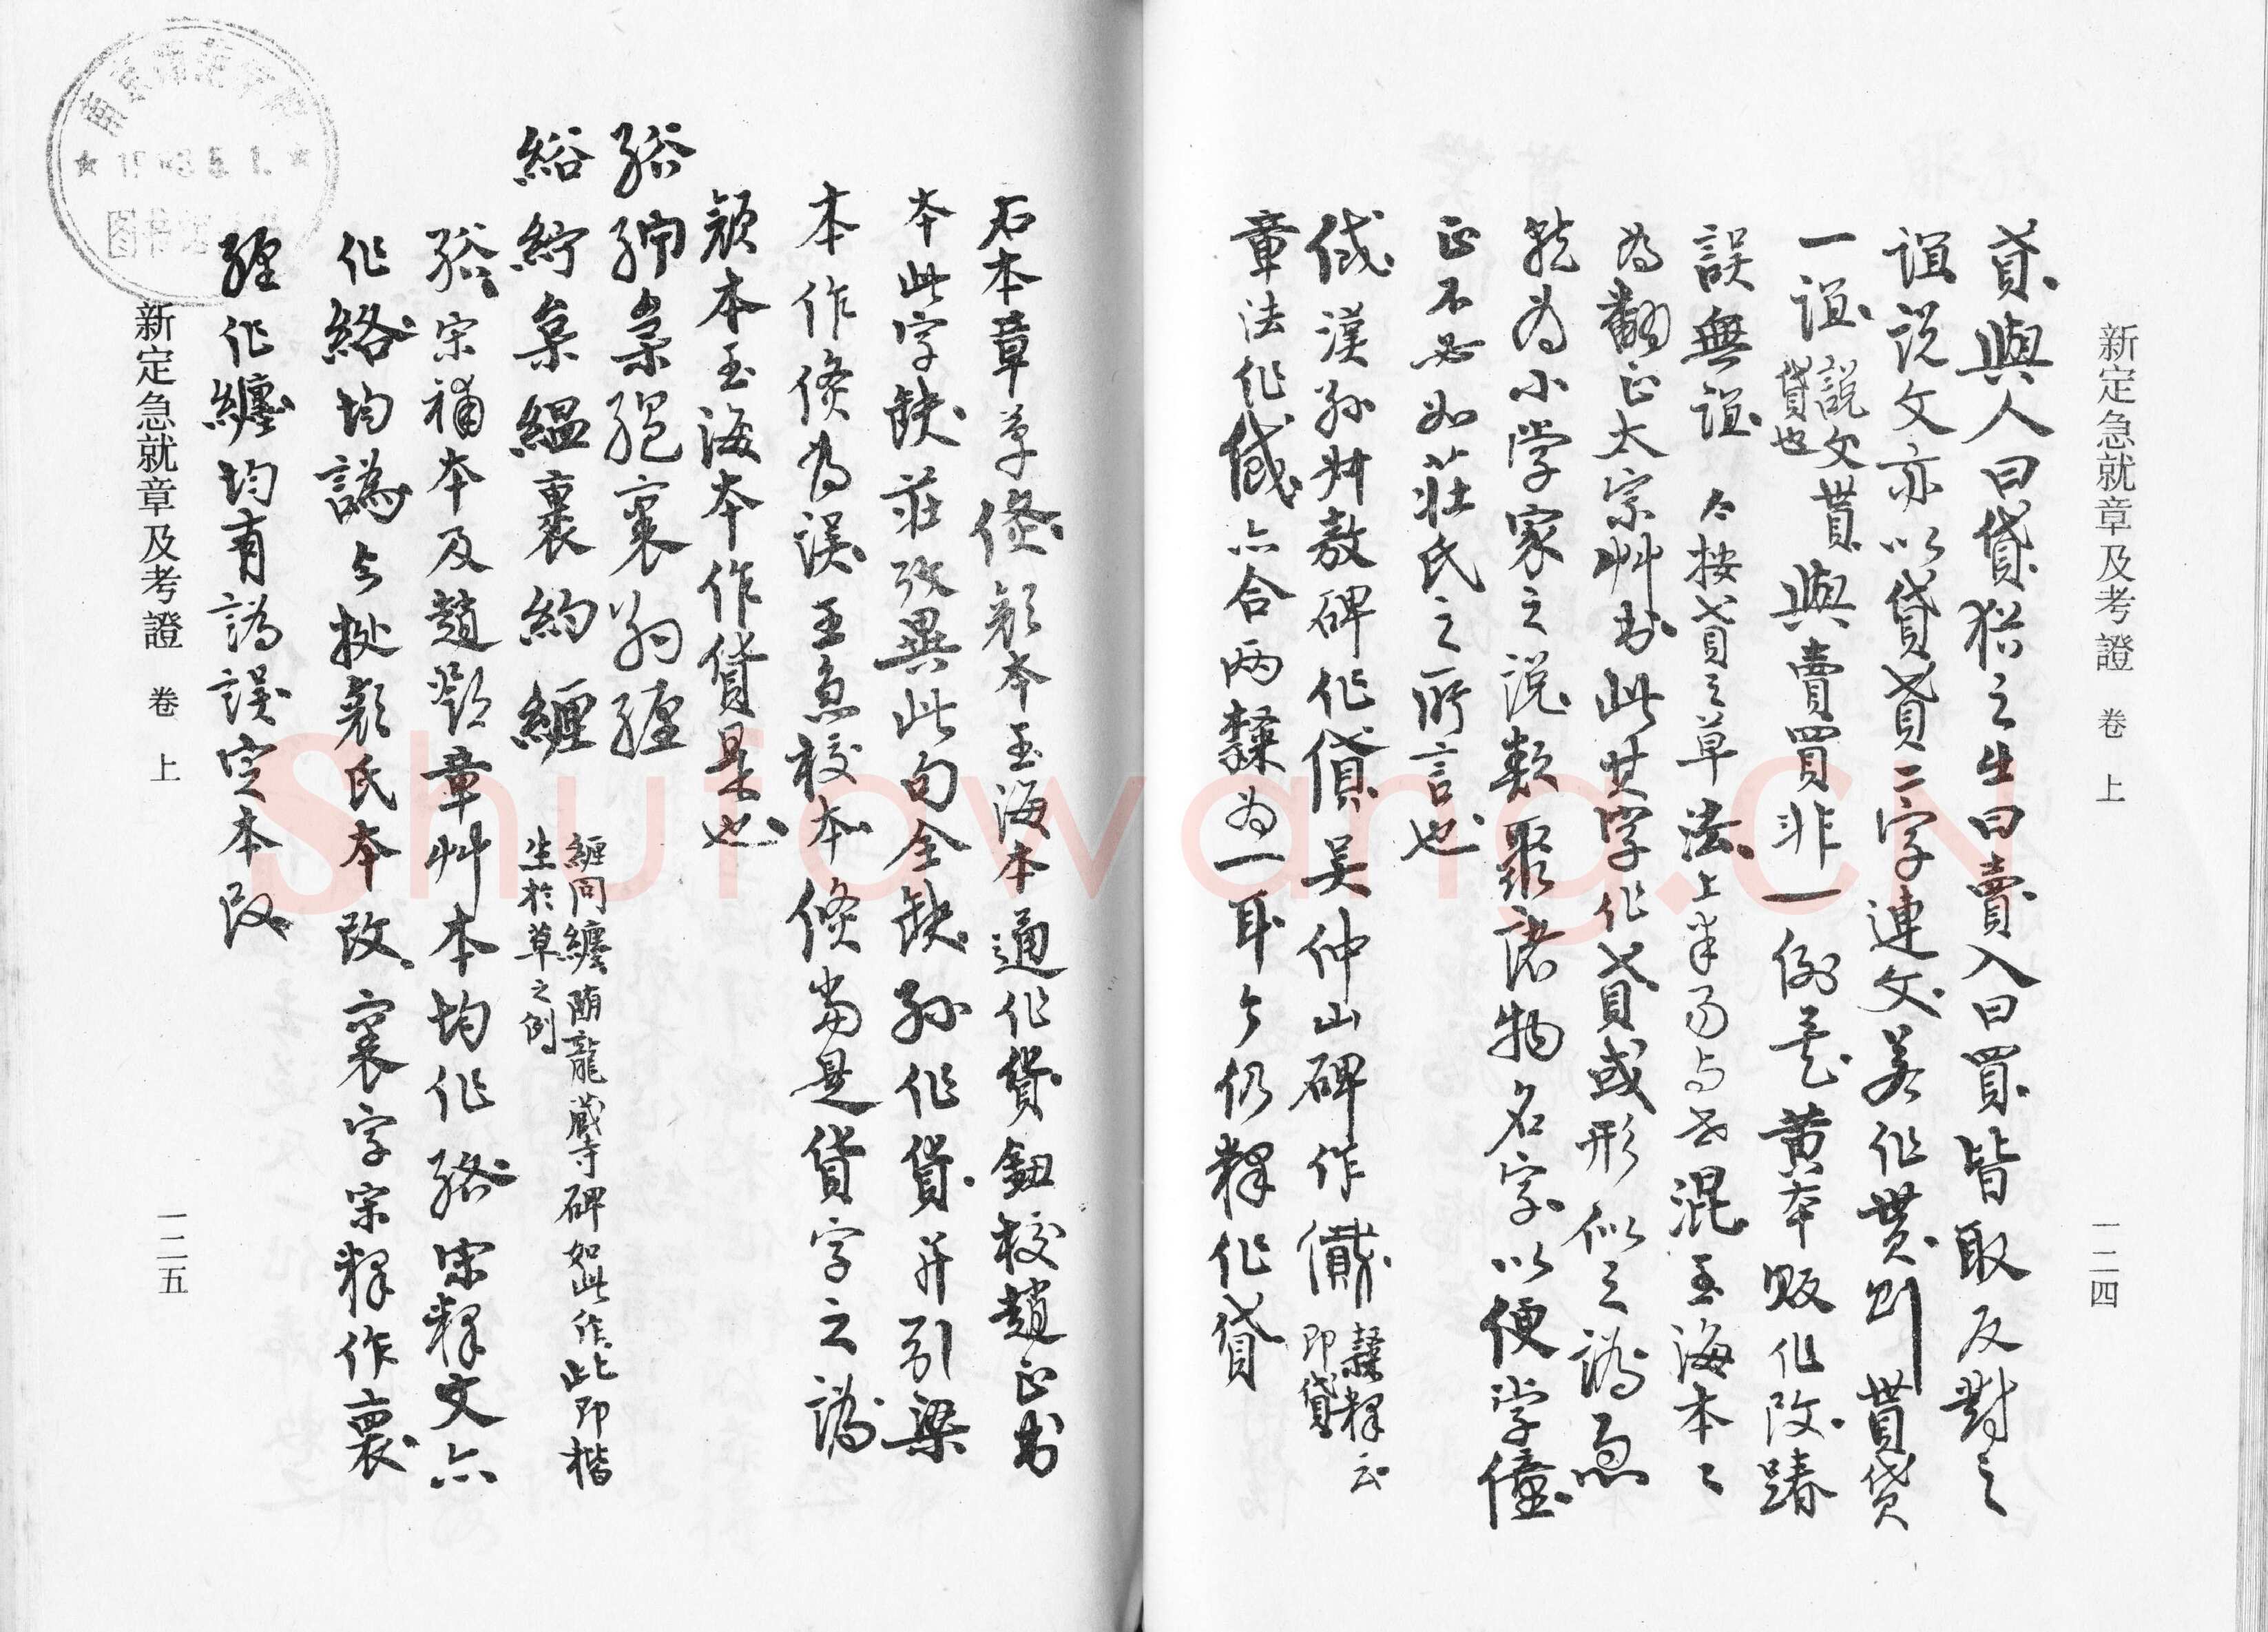 新定急就章及考證 卷上
一二四
貣與人曰貸猶之出曰賣入曰買皆取反對之
誼說文亦以貸貣二字連文若作貰則貰貸
一誼說文貰
貸也與賣買非一例是黃本販作改踳
誤無誼今按貣之草法上半易与世混玉海本之
為翻正太宗艸書此其字作貣或形似之譌急
就為小學家之說類聚諸物名字以便學僮
正不必如莊氏之所言也
漢孫叔敖碑作貸吳仲山碑作 隸釋云
即貸
章法作 亦合兩隸為一耳今仍釋作貸
石本章草 顏本玉海本通作貸鈕校趙正書
本此字缺莊攷異此句全缺孫作貸并引梁
本作倏為誤王急校本倏當是貸字之譌
顏本玉海本作貸是也
綌紵枲縕裹約纏 纏同纏隋龍藏寺碑如此作此即楷
生於草之例
宋補本及趙鄧章艸本均作 宋釋文亦
作絡均譌今據顏氏本改裹字宋釋作裏
作纏均有譌誤定本改
新定急就章及考證 卷上
一二五